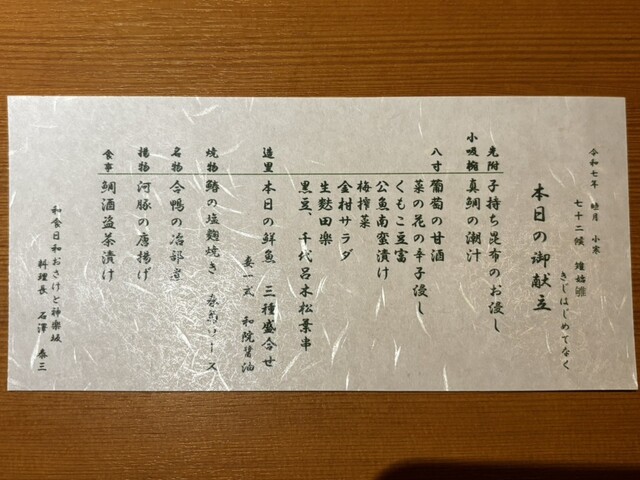 令和七年 睦月 小寒
七十二候 雉始雊
きじはじめてなく
本日の御献立
先附 子持ち昆布のお浸し
小吸椀 真鯛の潮汁
八寸 葡萄の甘酒
菜の花の辛子浸し
くもこ豆富
公魚南蛮漬け
梅搾菜
金柑サラダ
生麩田楽
黒豆、千代呂木松葉串
造里 本日の鮮魚 三種盛合せ
妻一式 和院醤油
焼物 鰆の塩麹焼き 春菊ソース
名物 合鴨の冶部煮
揚物 河豚の唐揚げ
食事 鯛酒盗茶漬け
和食日和おさけと神楽坂
料理長 石澤 泰三